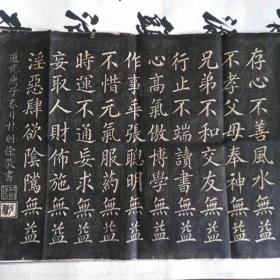 存心不善風水無益
不孝父母奉神無益
兄弟不和交友無益
行止不端讀書無益
心高氣傲博學無益
作事乖張聰明無益
不惜元氣服药無益
時運不通妄求無益
妄取人財佈施無益
淫惡肆欲陰騭無益
道光庚子春日林則徐敬書